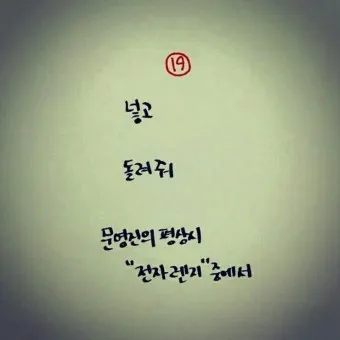 ⑲
넣고
돌려 줘
문영진의 평상시
"전자렌지" 중에서